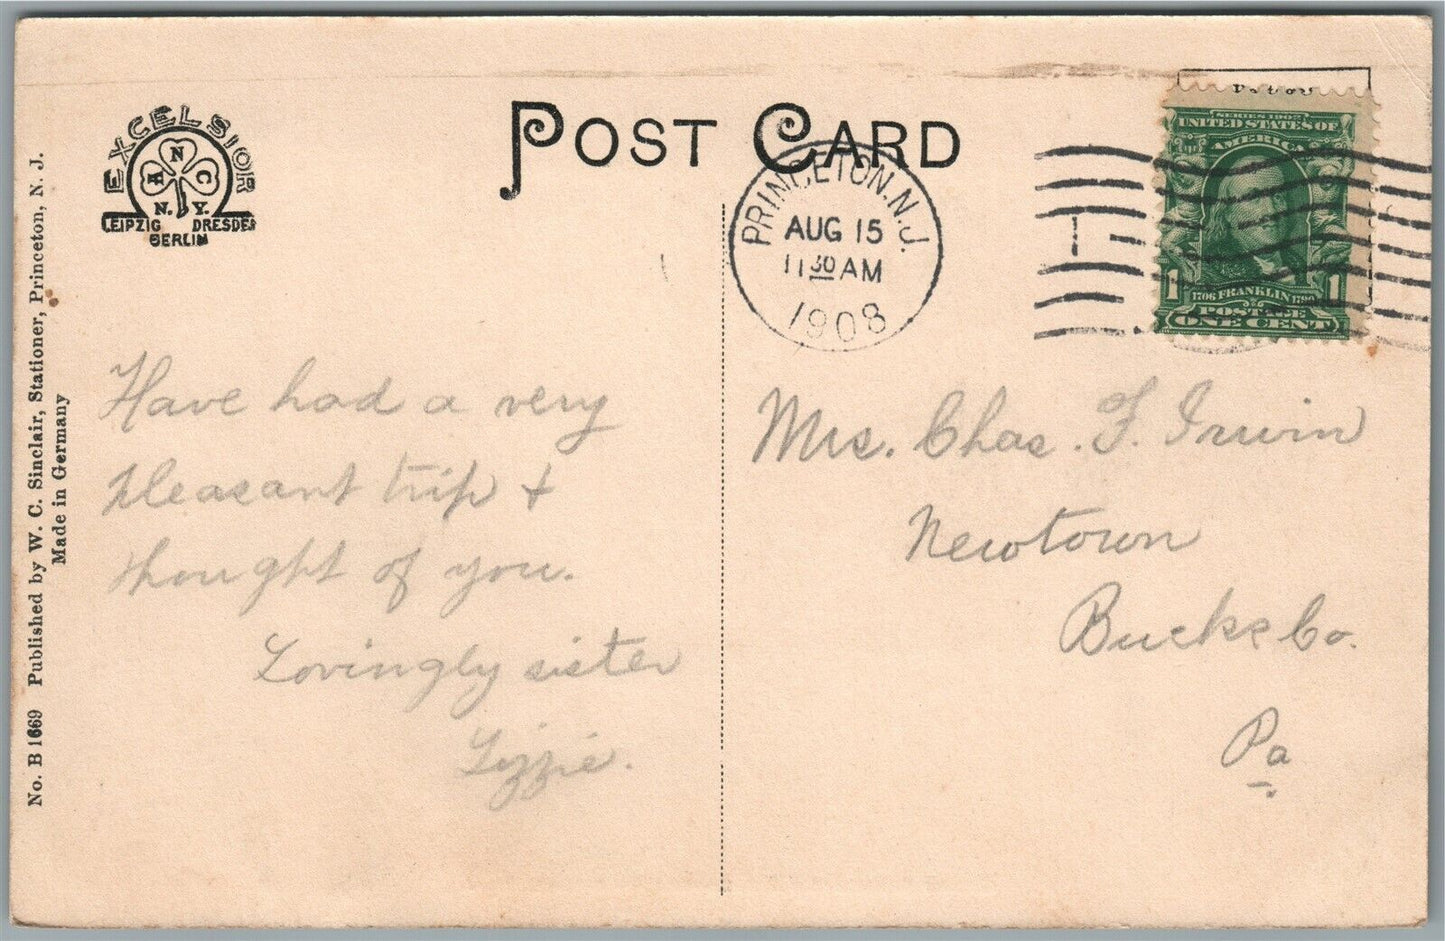 POST CARD
EXCELSIOR
A N C
N. Y.
LEIPZIG DRESDEN
BERLIN
No. B 1669 Published by W. C. Sinclair, Stationer, Princeton, N. J.
Made in Germany
PRINCETON, N.J.
AUG 15
11 30 AM
1908
1
SERIES 1902
UNITED STATES OF
AMERICA
1 1
1706 FRANKLIN 1790
POSTAGE
ONE CENT
Have had a very
pleasant trip +
thought of you.
Lovingly sister
Lizzie.
Mrs. Chas. F. Irwin
Newtown
Bucks Co.
Pa